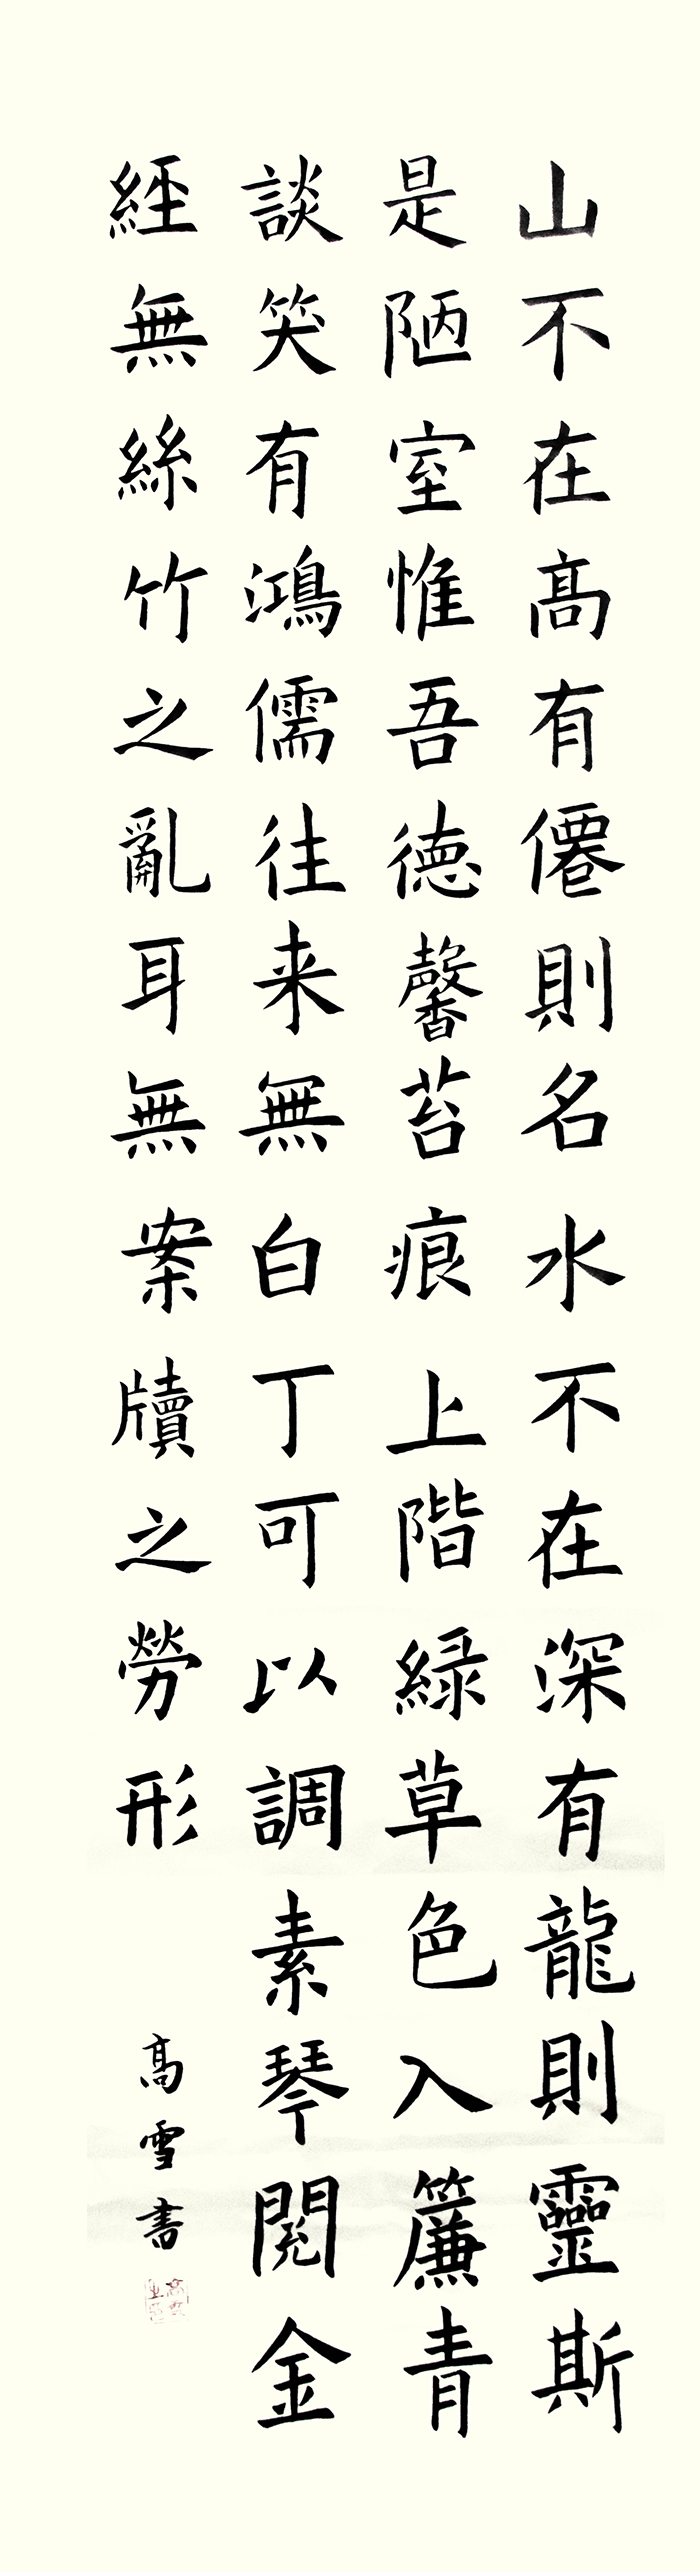 山不在高有僊則名水不在深有龍則靈斯
是陋室惟吾德馨苔痕上階緑草色入簾青
談笑有鴻儒往来無白丁可以調素琴閱金
經無絲竹之亂耳無案牘之勞形
高雪書